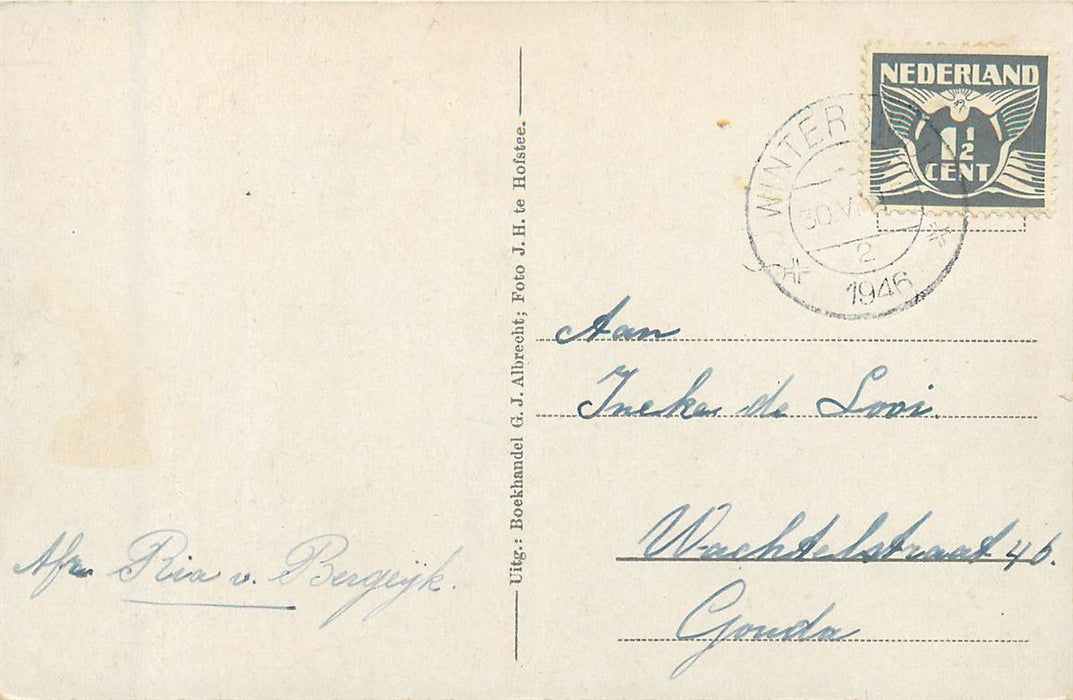 NEDERLAND
1½
CENT
WINTERSWIJK
2
1946
Uitg.: Boekhandel G. J. Albrecht; Foto J. H. te Hofstee.
Aan
Ineke de Looi.
Wachtelstraat 46.
Gouda
Afz. Ria v. Bergeijk.